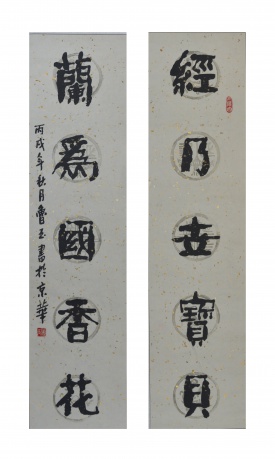 經乃世寶貝
蘭為國香花
丙戌年秋月魯玉書於京華